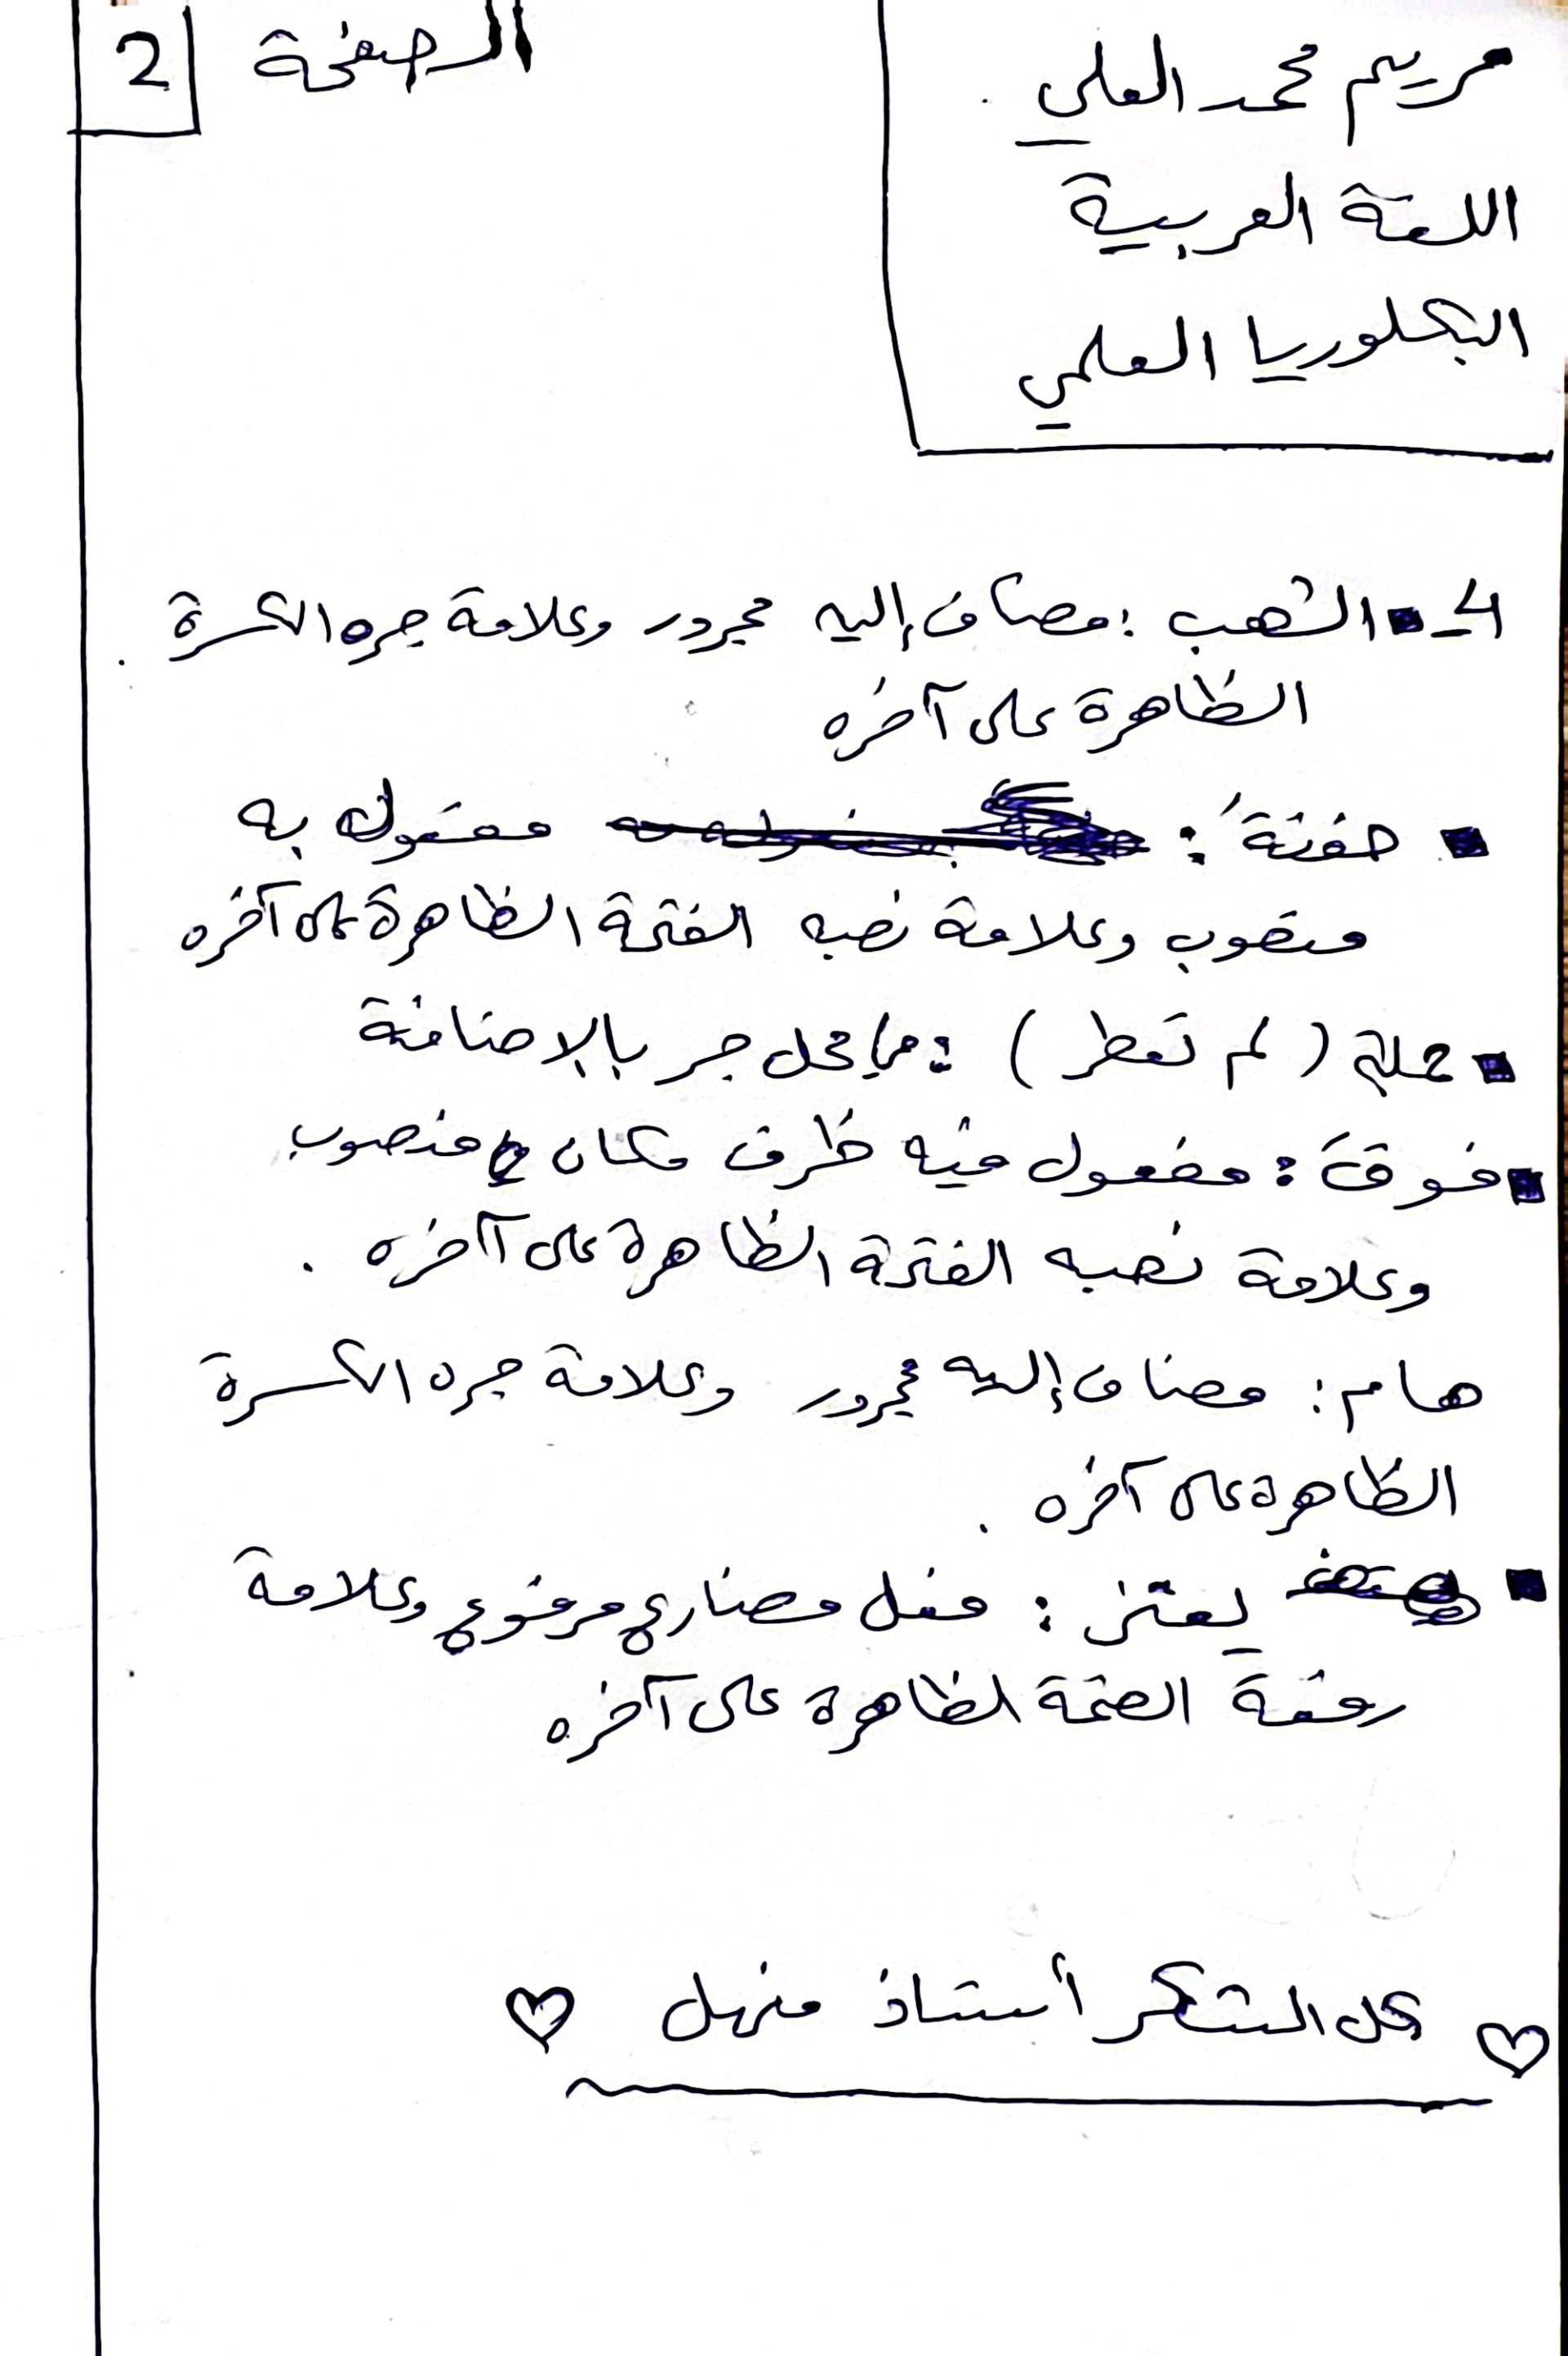 الصفحة 2
مريم محمد العلي
اللغة العربية
البكلوريا العلمي
4- الشهب : مضاف إليه مجرور وعلامة جره الكسرة
الظاهرة على آخره
حفنةً : مفعول به
منصوب وعلامة نصبه الفتحة الظاهرة على آخره
جملة ( لم تمطر ) : في محل جر بالإضافة
فوقَ : مفعول فيه ظرف مكان منصوب
وعلامة نصبه الفتحة الظاهرة على آخره .
هام : مضاف إليه مجرور وعلامة جره الكسرة
الظاهرة على آخره .
يعتز : فعل مضارع مرفوع وعلامة
رفعة الضمة الظاهرة على آخره
كل الشكر أستاذ منهل